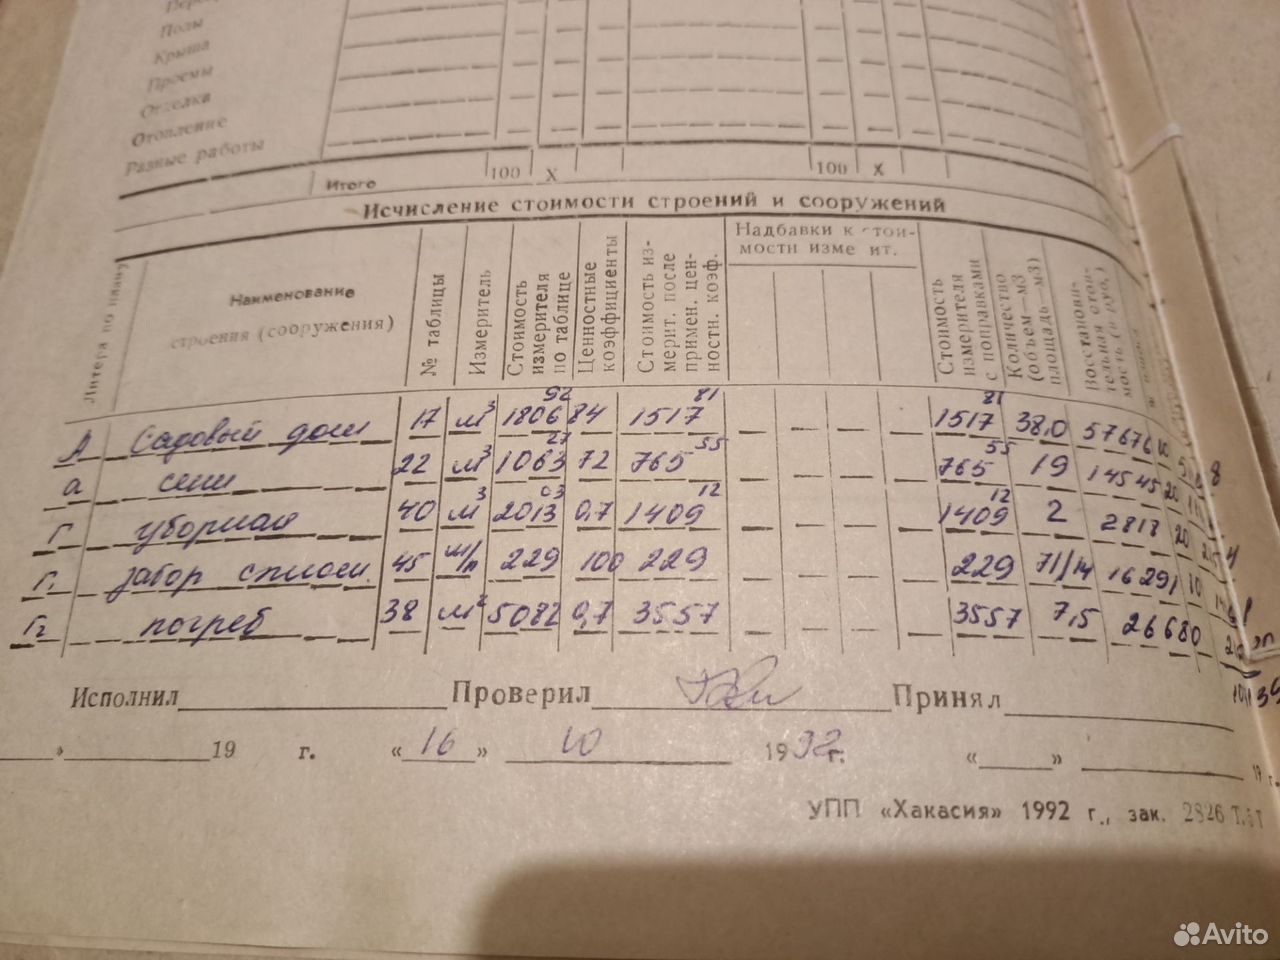 Полы
Крыша
Проемы
Отделка
Отопление
Разные работы
Итого 100 X 100 X
Исчисление стоимости строений и сооружений
Литера по плану
Наименование строения (сооружения)
№ таблицы
Измеритель
Стоимость измерителя по таблице
Ценностные коэффициенты
Стоимость измерит. после примен. ценности. коэф.
Надбавки к стоимости изме ит.
Стоимость измерителя с поправками
Количество (объем—м3 площадь—м3)
А Садовый дом 17 м3 1806 92 84 1517 81 1517 81 38,0 57676
а сени 22 м3 1063 27 72 765 55 765 55 19 14545 20
Г уборная 40 м3 2013 03 0,7 1409 12 1409 12 2 2818 20
Г1 забор сплош. 45 м/п 229 100 229 229 71/14 16291 10
Г2 погреб 38 м2 5082 0,7 3557 3557 7,5 26680
Исполнил Проверил Принял
» 19 г. «16» 10 1992 г. « » 19 г.
УПП «Хакасия» 1992 г., зак. 2826
Avito